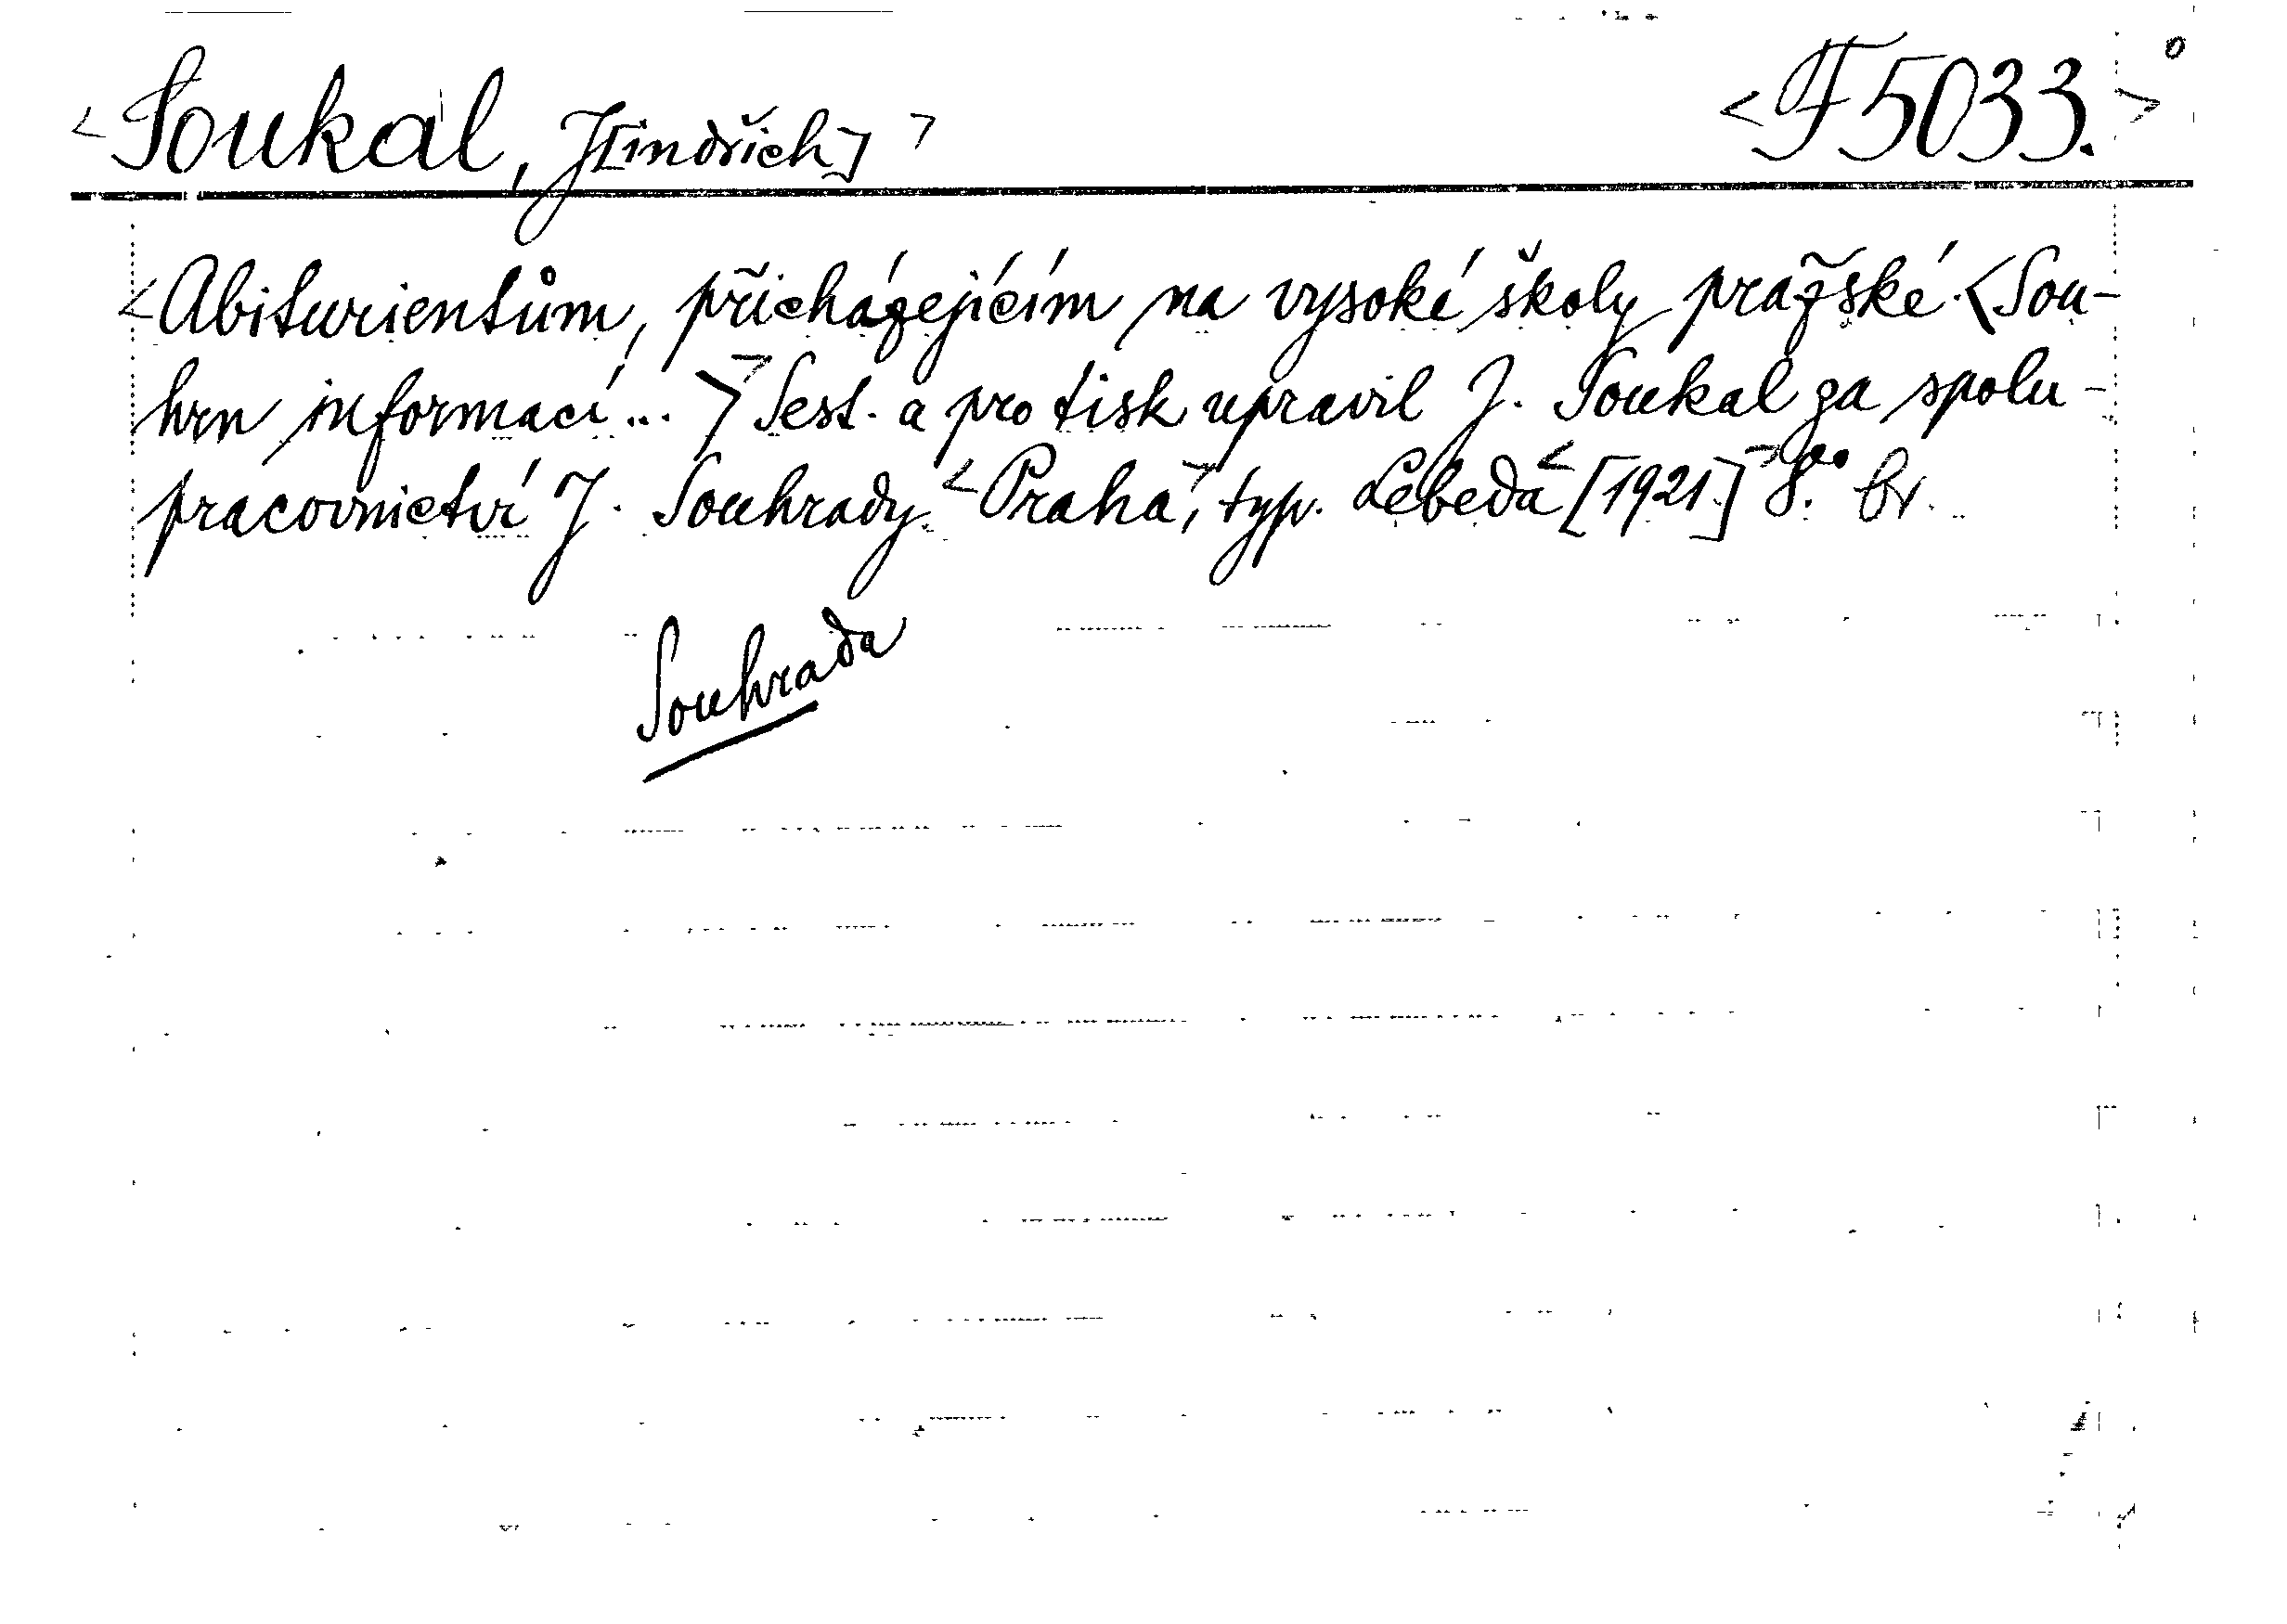 <Soukal, J[indřich]> <F 5033.>°
<Abiturientům, přicházejícím na vysoké školy pražské. <Sou-
hrn informací...>> Sest. a pro tisk upravil J. Soukal za spolu-
pracovnictví J. Souhrady. <Praha>, typ. Lebeda <[1921]> 8.° br.
Souhrada